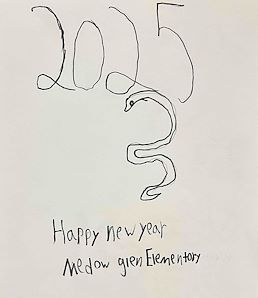 2025
Happy new year
Medow glen Elementary